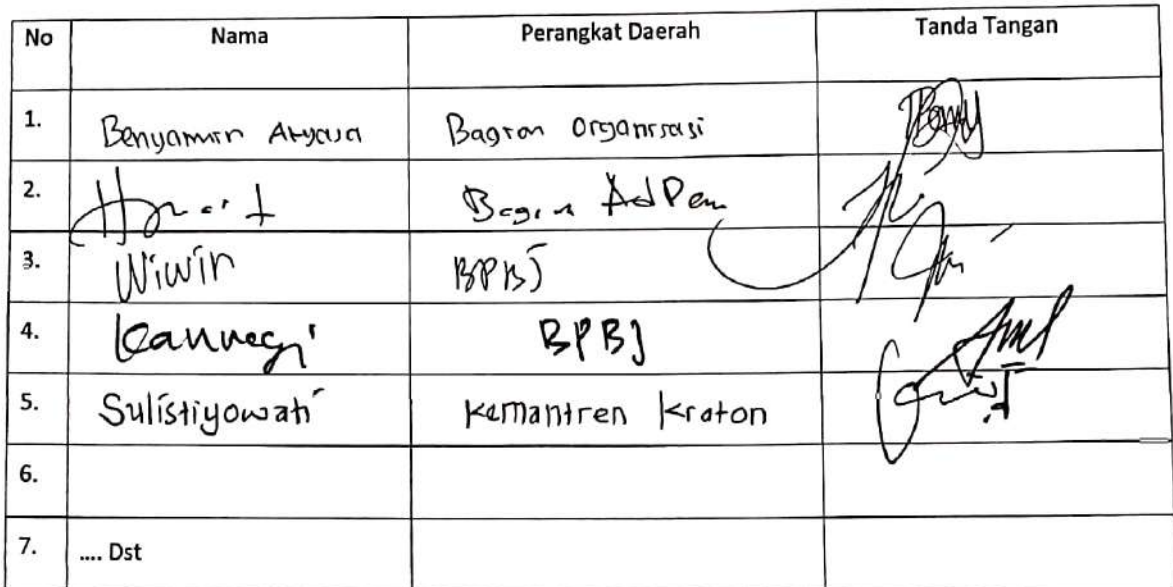 No Nama Perangkat Daerah Tanda Tangan
1. Benyamin Bagian Organisasi
2. Bagian AdPem
3. Wiwin BPBJ
4. BPBJ
5. Sulistiyowati Kemantren Kraton
6.
7. .... Dst